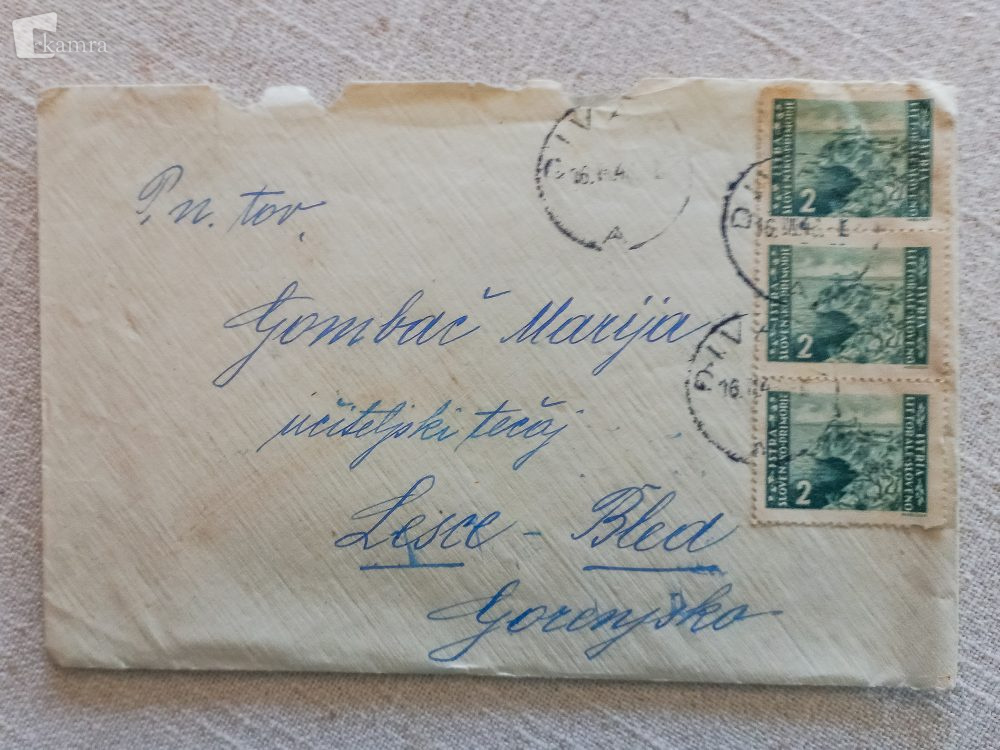 kamra
P. n. tov.
Gombač Marija
učiteljski tečaj
Lesce - Bled
Gorenjsko
ISTRIA
SLOVENSKO PRIMORJE
LITTORALE SLOVENO
2
ISTRA
SLOVENSKO PRIMORJE
ISTRIA
LITTORALE SLOVENO
2
ISTRA
SLOVENSKO PRIMORJE
ISTRIA
LITTORALE SLOVENO
2